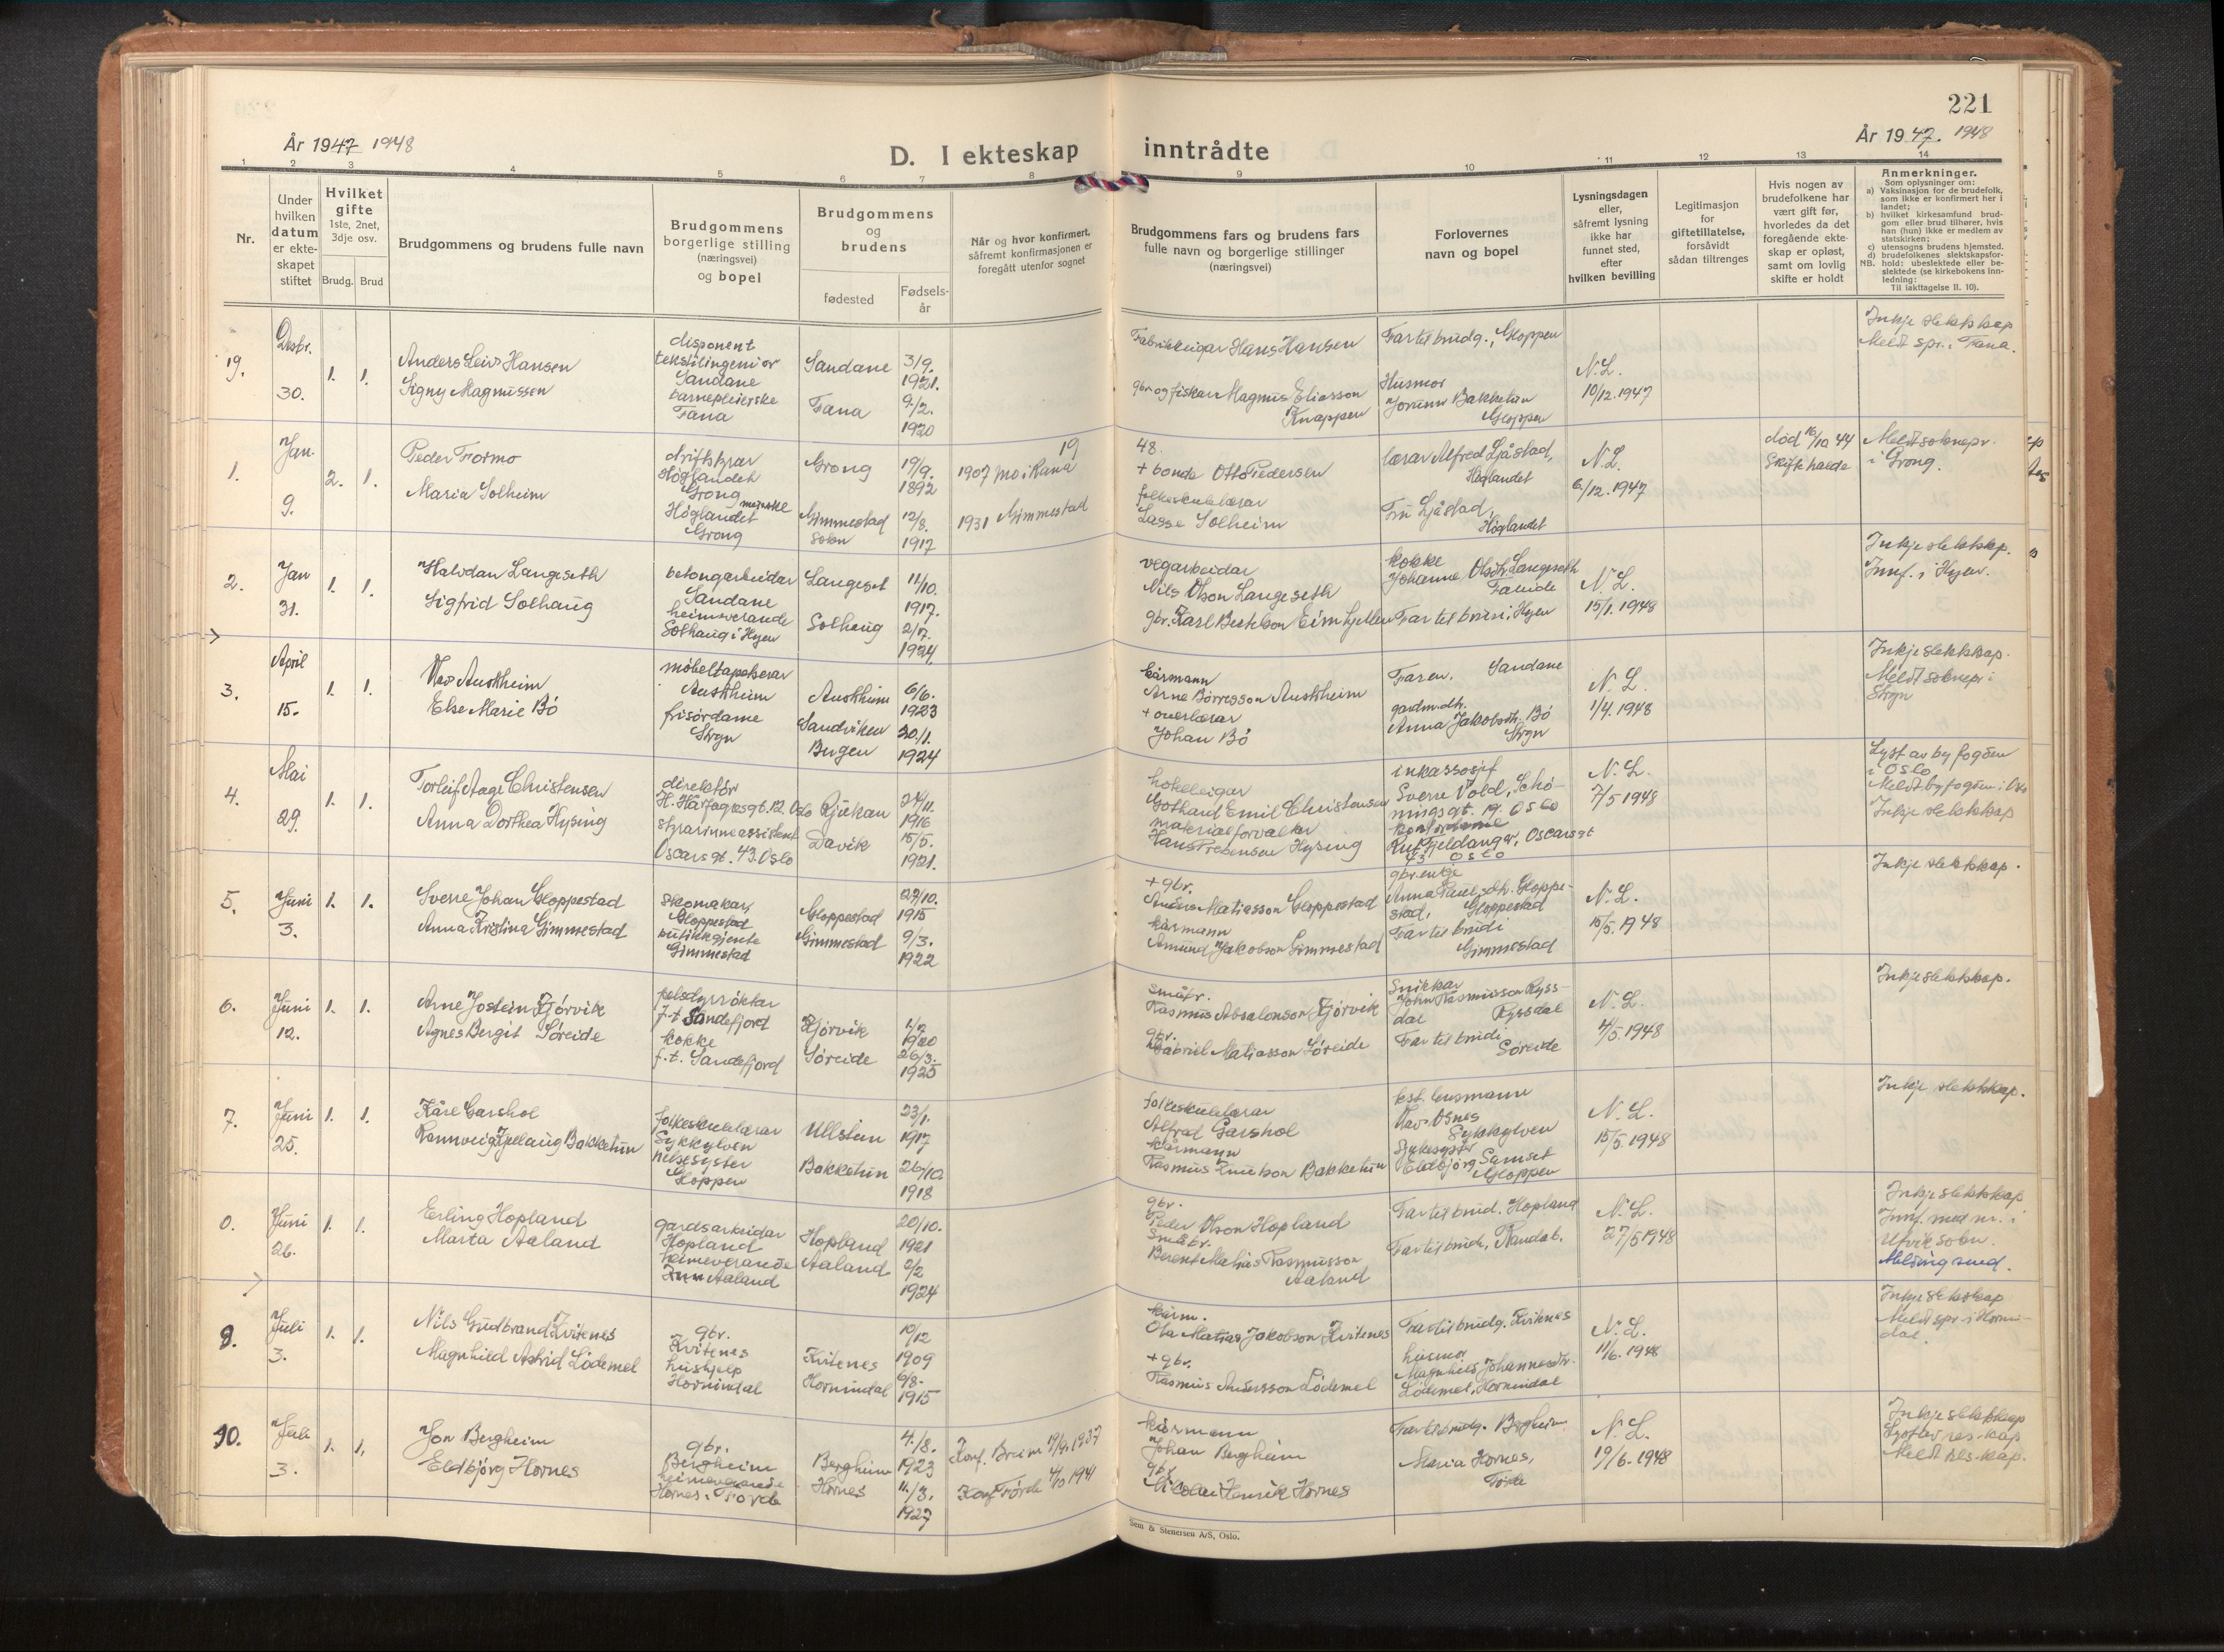 221
År 1947 1948
D. I ekteskap inntrådte
År 1947. 1948
1 2 3 4 5 6 7 8 9 10 11 12 13 14
Nr.
Under hvilken datum er ekteskapet stiftet
Hvilket gifte 1ste, 2net, 3dje osv.
Brudg. Brud
Brudgommens og brudens fulle navn
Brudgommens borgerlige stilling (næringsvei) og bopel
Brudgommens og brudens
fødested
Fødselsår
Når og hvor konfirmert, såfremt konfirmasjonen er foregått utenfor sognet
Brudgommens fars og brudens fars fulle navn og borgerlige stillinger (næringsvei)
Forlovernes navn og bopel
Lysningsdagen eller, såfremt lysning ikke har funnet sted, efter hvilken bevilling
Legitimasjon for giftetillatelse, forsåvidt sådan tiltrenges
Hvis nogen av brudefolkene har vært gift før, hvorledes da det foregående ekteskap er opløst, samt om lovlig skifte er holdt
Anmerkninger.
Som oplysninger om:
a) Vaksinasjon for de brudefolk, som ikke er konfirmert her i landet;
b) hvilket kirkesamfund brudgom eller brud tilhører, hvis han (hun) ikke er medlem av statskirken;
c) utensogns brudens hjemsted.
d) brudefolkenes slektskapsforhold: ubeslektede eller beslektede (se kirkebokens innledning:
NB. Til iakttagelse II. 10).
19. Desbr. 30. 1. 1.
Anders Leiv Hansen
Signy Magnussen
disponent
tekstilingeniør
Sandane
barnepleierske
Fana
Sandane 3/9. 1921.
Fana 9/2. 1920
Fabrikkeigar Hans Hansen
gbr. og fiskar Magnus Eliasson
Knappen
Far til brudg., Gloppen
Husmor
Jorunn Bakketun
Gloppen
N.L.
10/12.1947
Inkje slektskap
Meldt spr. i Fana.
19 48.
1. Jan. 9. 2. 1.
Peder Formo
Maria Solheim
driftstyrar
Höglandet
Grong
meierske
Höglandet
Grong
Grong 19/9. 1892
Gimmestad sokn 12/8. 1917
1907 Mo i Rana
1931 Gimmestad
+ bonde Otto Pedersen
folkeskulelærar
Lasse Solheim
lærar Alfred Ljåstad,
Høglandet
Fru Ljåstad,
Höglandet
N.L.
6./12.1947
død 16/10 44
Skifte halde
Meldt soknepr.
i Grong.
2. Jan 31. 1. 1.
Halvdan Langeseth
Sigfrid Solhaug
betongarbeidar
Sandane
heimeverande
Solhaug i Hyen
Langeset 11/10. 1917.
Solhaug 2/7. 1924.
vegarbeidar
Nils Olson Langeseth
gbr. Karl Bertelson Eimhjellen
kokke
Johanne Olsdtr. Langeseth
Far til bruri, Hyen
N.L.
15/1.1948
Inkje slektskap.
Innf. i Hyen.
3. April 15. 1. 1.
Olav Austrheim
Else Marie Bö
möbeltapetserar
Austrheim
frisördame
Stryn
Austrheim 6/6. 1923
Sandviken Bergen 30./1. 1924
kårmann
Arne Börresson Austrheim
+ overlærar
Johan Bö
Faren. Sandane
gardm.dtr.
Anna Jakobsdtr. Bö
Stryn
N.L.
1/4.1948
Inkje slektskap.
Meldt soknepr. i
Stryn
4. Mai 29. 1. 1.
Torleif Aage Christensen
Anna Dorthea Hysing
direktör
H. Hårfagresgt. 12. Oslo
styrarinneassistent
Oscarsgt. 43. Oslo
Rjukan 24/11. 1916
Davik 15/5. 1921.
hotelleigar
Gothard Emil Christensen
materialforvaltar
Hans Prebensen Hysing
inkassosjef
Sverre Vold, Schö-
ningsgt. 19. Oslo
Rut Fjeldanger, Oscarsgt
43 Oslo
N.L.
7/5 1948
Lyst av byfogden
i Oslo
Meldt byfogden i Oslo
Inkje slektskap
5. Juni 3. 1. 1.
Sverre Johan Gloppestad
Anna Kristina Gimmestad
skomakar,
Gloppestad
butikkgjente
Gimmestad
Gloppestad 27/10. 1915
Gimmestad 9/3. 1922
+ gbr.
Anders Matiasson Gloppestad
kårmann
Amund Jakobson Gimmestad
gbr. enkje
Anna Paulsdtr. Gloppe-
stad, Gloppestad
Far til brudi
Gimmestad
N.L.
15/5.1948
Inkje slektskap.
6. Juni 12. 1. 1.
Arne Jostein Kjörvik
Agnes Bergit Söreide
pelsdyrröktar
f.t. Sandefjord
kokke
f.t. Sandefjord
Kjörvik 1/7 1920
Söreide 26/3. 1925
småbr.
Rasmus Absalonson Kjörvik
gbr.
Gabriel Matiasson Söreide
Snikkar
John Rasmusson Ryss-
dal Ryssdal
Far til brudi
Söreide
N.L.
4/5.1948
Inkje slektskap.
7. Juni 25. 1. 1.
Kåre Garshol
Rannveig Hjellaug Bakketun
folkeskulelærar
Sykkylven
helsesyster
Gloppen
Ullstein 23/1. 1917
Bakketun 26/10. 1918
folkeskulelærar
Alfred Garshol
kårmann
Rasmus Knutson Bakketun
kst. lensmann
Olav Osnes
Sykkylven
Sykesyster
Eldbjörg Samset
Gloppen
N.L.
15/5.1948
Inkje slektskap.
0. Juni 26. 1. 1.
Erling Hopland
Marta Aaland
gardsarbeidar
Hopland
heimeverande
Inn Aaland
Hopland 20/10. 1921
Aaland 2/2 1924
gbr.
Peder Olson Hopland
Småbr.
Berent Matias Rasmusson
Aaland
Far til brud. Hopland
Far til brudi, Randab.
N.L.
27/5 1948
Inkje slektskap
Innf. med nr. i
Utvik sokn.
Melding send.
8. Juli 3. 1. 1.
Nils Gudbrand Kvitenes
Magnhild Astrid Lödemel
gbr.
Kvitenes
hushjelp
Hornindal
Kvitenes 10/12 1909
Hornindal 6/8. 1915
kårm.
Ola Mathias Jakobson Kvitenes
+ gbr.
Rasmus Andersson Lödemel
Far til brudg. Kvitenes
husmor
Magnhild Johannesdtr.
Lödemel, Hornindal
N.L.
11/6.1948
Inkje slektskap
Meldt spr. i Hornin-
dal.
10. Juli 3. 1. 1.
Jon Bergheim
Eldbjörg Hornes
gbr.
Bergheim
heimeverande
Hornes, Förde
Bergheim 4./8. 1923
Hornes 11./3. 1927
Konf. Breim 19/9.1937
Konf. Förde 4/10 1941
kårmann
Johan Bergheim
gbr.
Nicolai Henrik Hornes
Far til brudg. Bergheim
Maria Hornes,
Förde
N.L.
19/6.1948
Inkje slektskap
Lyst av res.kap
Meldt res.kap.
Sem & Stenersen A/S, Oslo.